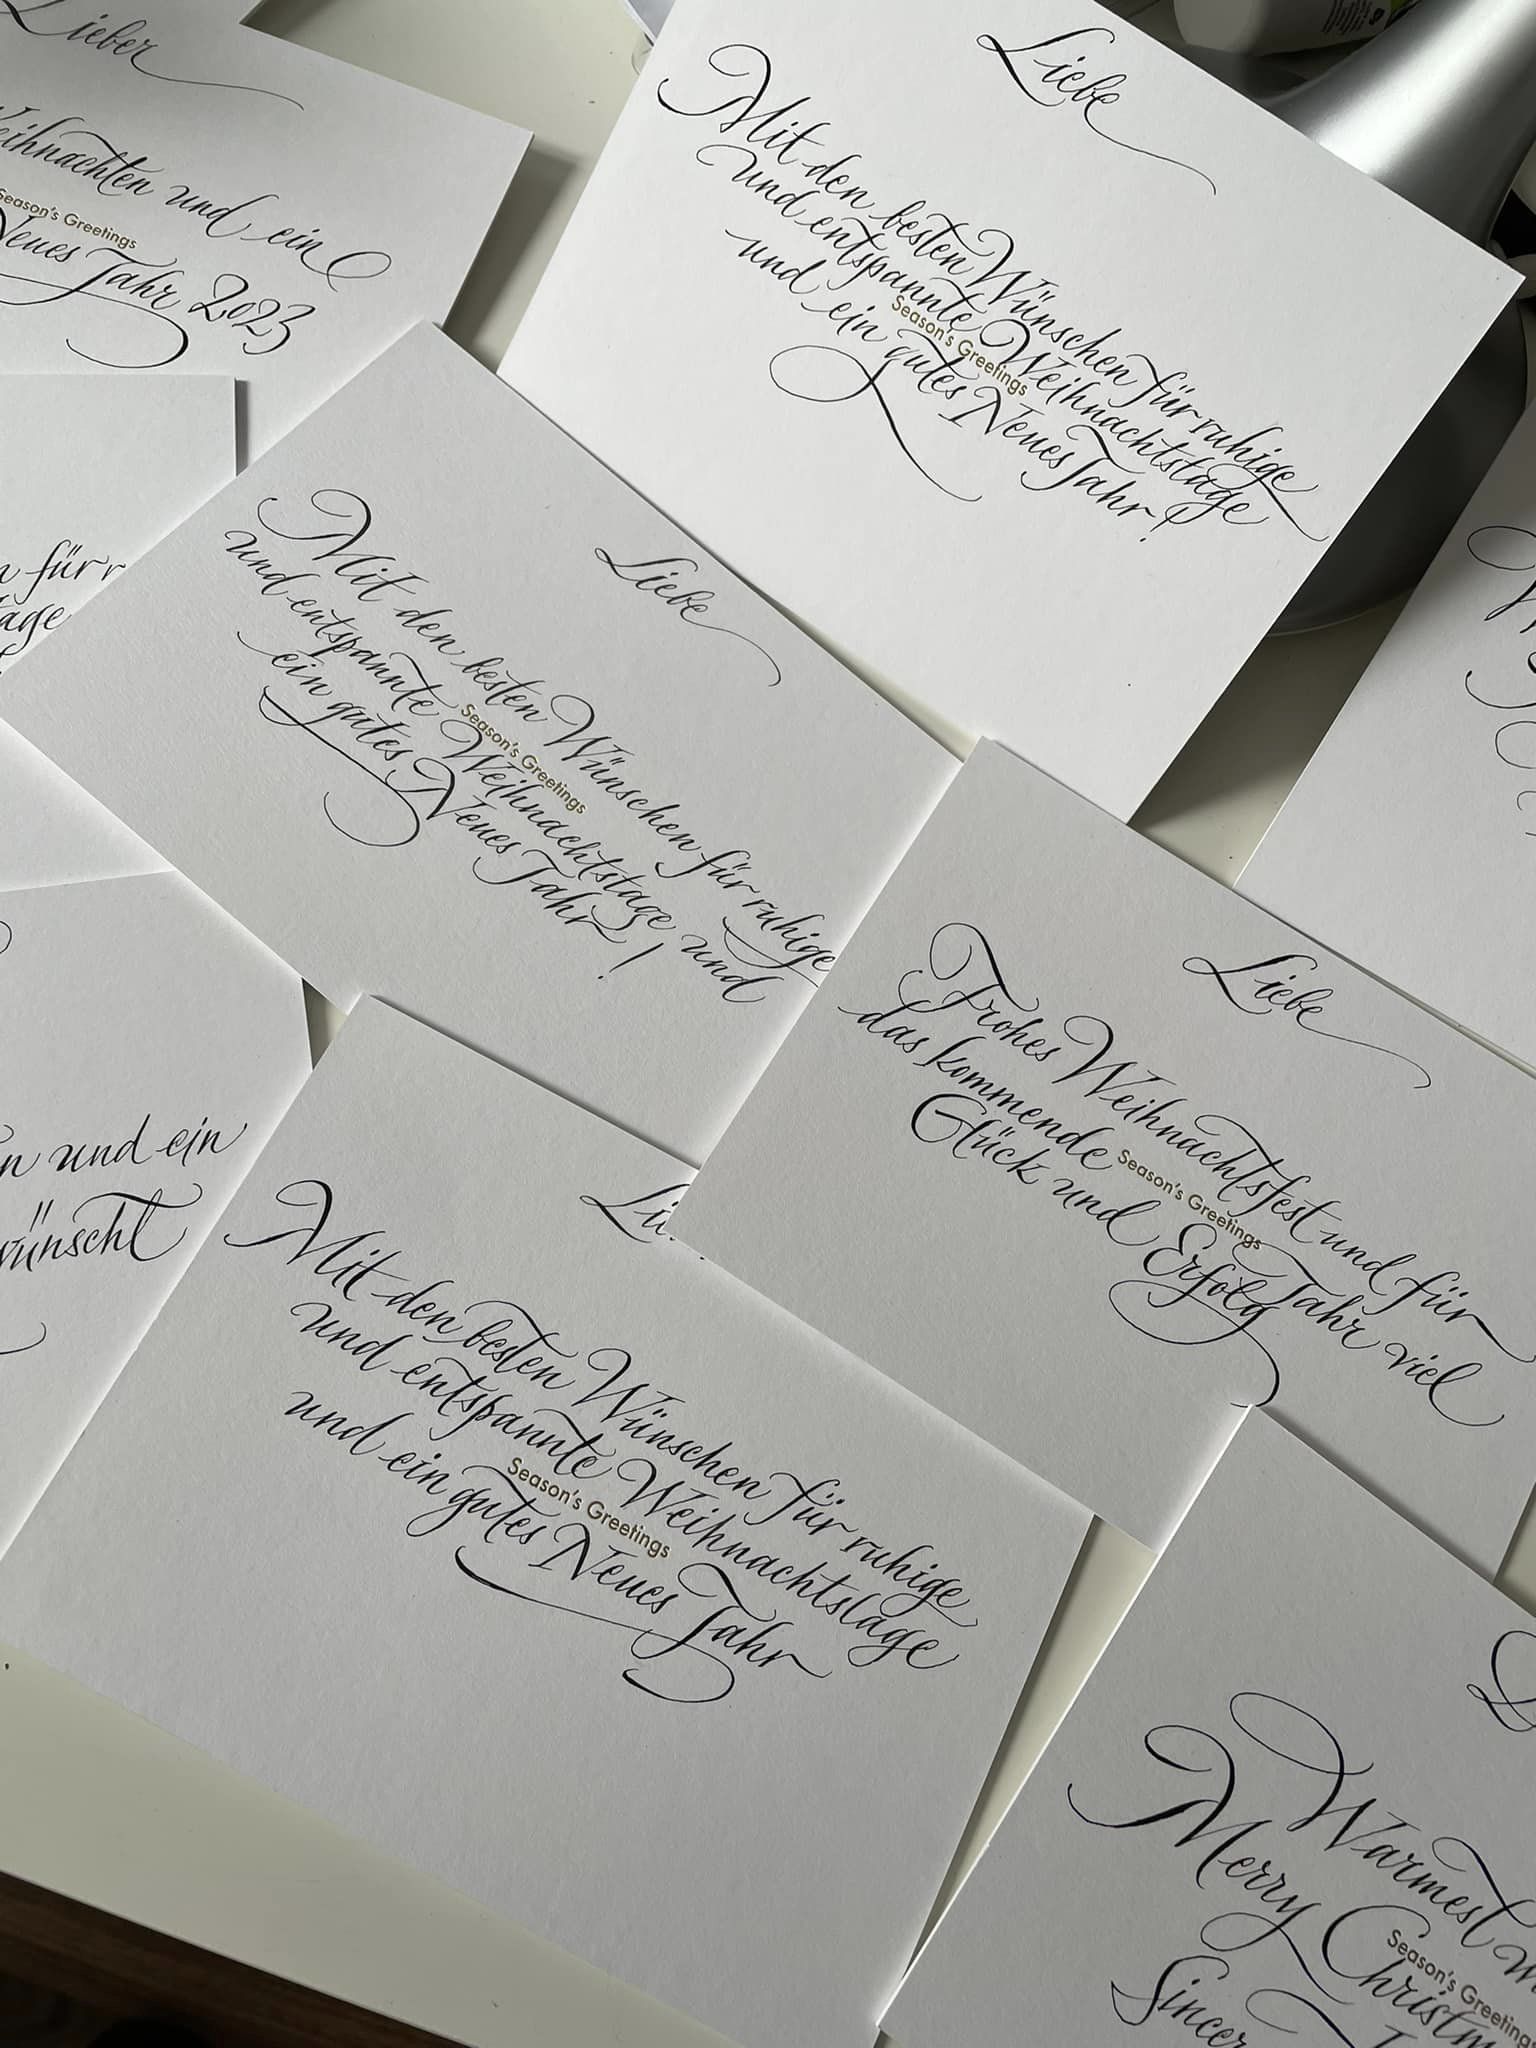 Lieber
Weihnachten und ein
Season's Greetings
Neues Jahr 2023
Liebe
Mit den besten Wünschen für ruhige
und entspannte Weihnachtstage
Season's Greetings
und ein gutes Neues Jahr!
für
Liebe
Mit den besten Wünschen für ruhige
und entspannte Weihnachtstage und
Season's Greetings
ein gutes Neues Jahr!
Liebe
Frohes Weihnachtsfest und für
das kommende Jahr viel
Season's Greetings
Glück und Erfolg
und ein
wünscht
Mit den besten Wünschen für ruhige
und entspannte Weihnachtstage
Season's Greetings
und ein gutes Neues Jahr
Warmest
Merry Christm
Season's Greetings
Sincer